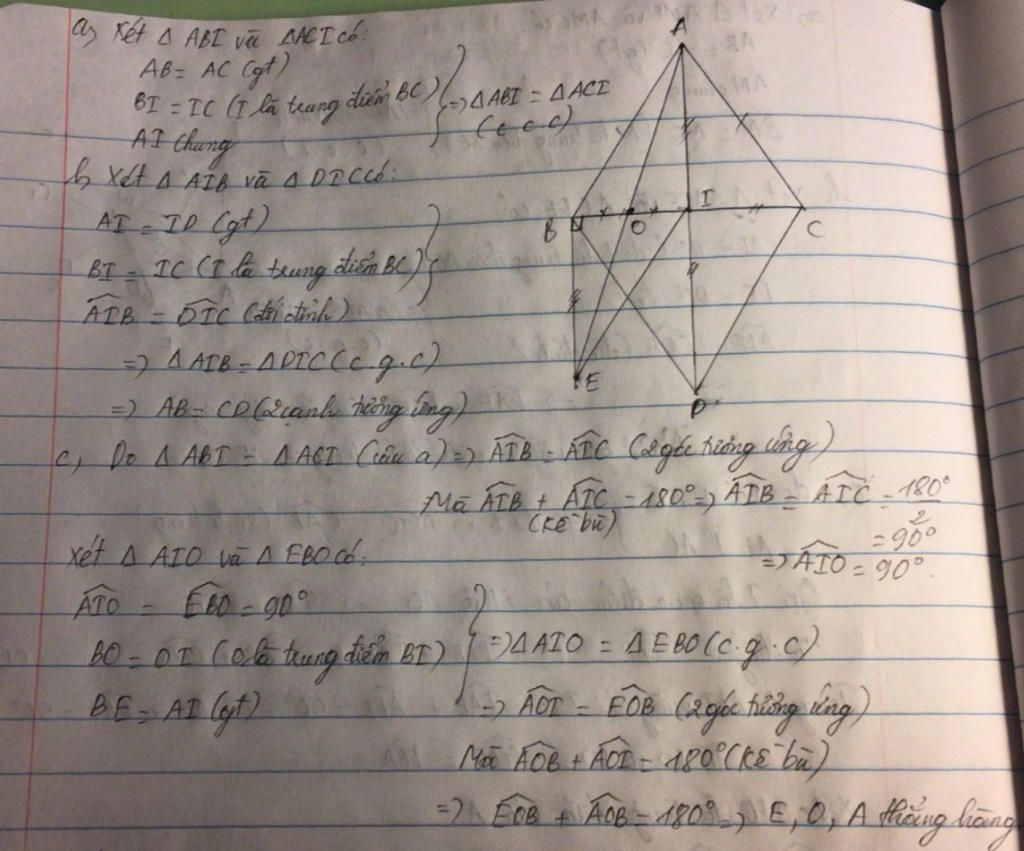 a, Xét Δ ABI và ΔACI có:
AB = AC (gt)
BI = IC (I là trung điểm BC) => ΔABI = ΔACI
AI chung (c.c.c)
b, Xét Δ AIB và Δ DIC có:
AI = ID (gt)
BI = IC (I là trung điểm BC)
\widehat{AIB} = \widehat{DIC} (đối đỉnh)
=> Δ AIB = ΔDIC (c.g.c)
=> AB = CD (2 cạnh tương ứng)
c, Do Δ ABI = Δ ACI (câu a) => \widehat{AIB} = \widehat{AIC} (2 góc tương ứng)
Mà \widehat{AIB} + \widehat{AIC} = 180° => \widehat{AIB} = \widehat{AIC} = \frac{180°}{2}
(kề bù) = 90°
=> \widehat{AIO} = 90°.
Xét Δ AIO và Δ EBO có:
\widehat{AIO} = \widehat{EBO} = 90°
BO = OI (O là trung điểm BI) => Δ AIO = Δ EBO (c.g.c)
BE = AI (gt) => \widehat{AOI} = \widehat{EOB} (2 góc tương ứng)
Mà \widehat{AOB} + \widehat{AOI} = 180° (kề bù)
=> \widehat{EOB} + \widehat{AOB} = 180° => E, O, A thẳng hàng
A
B
O
I
C
E
D